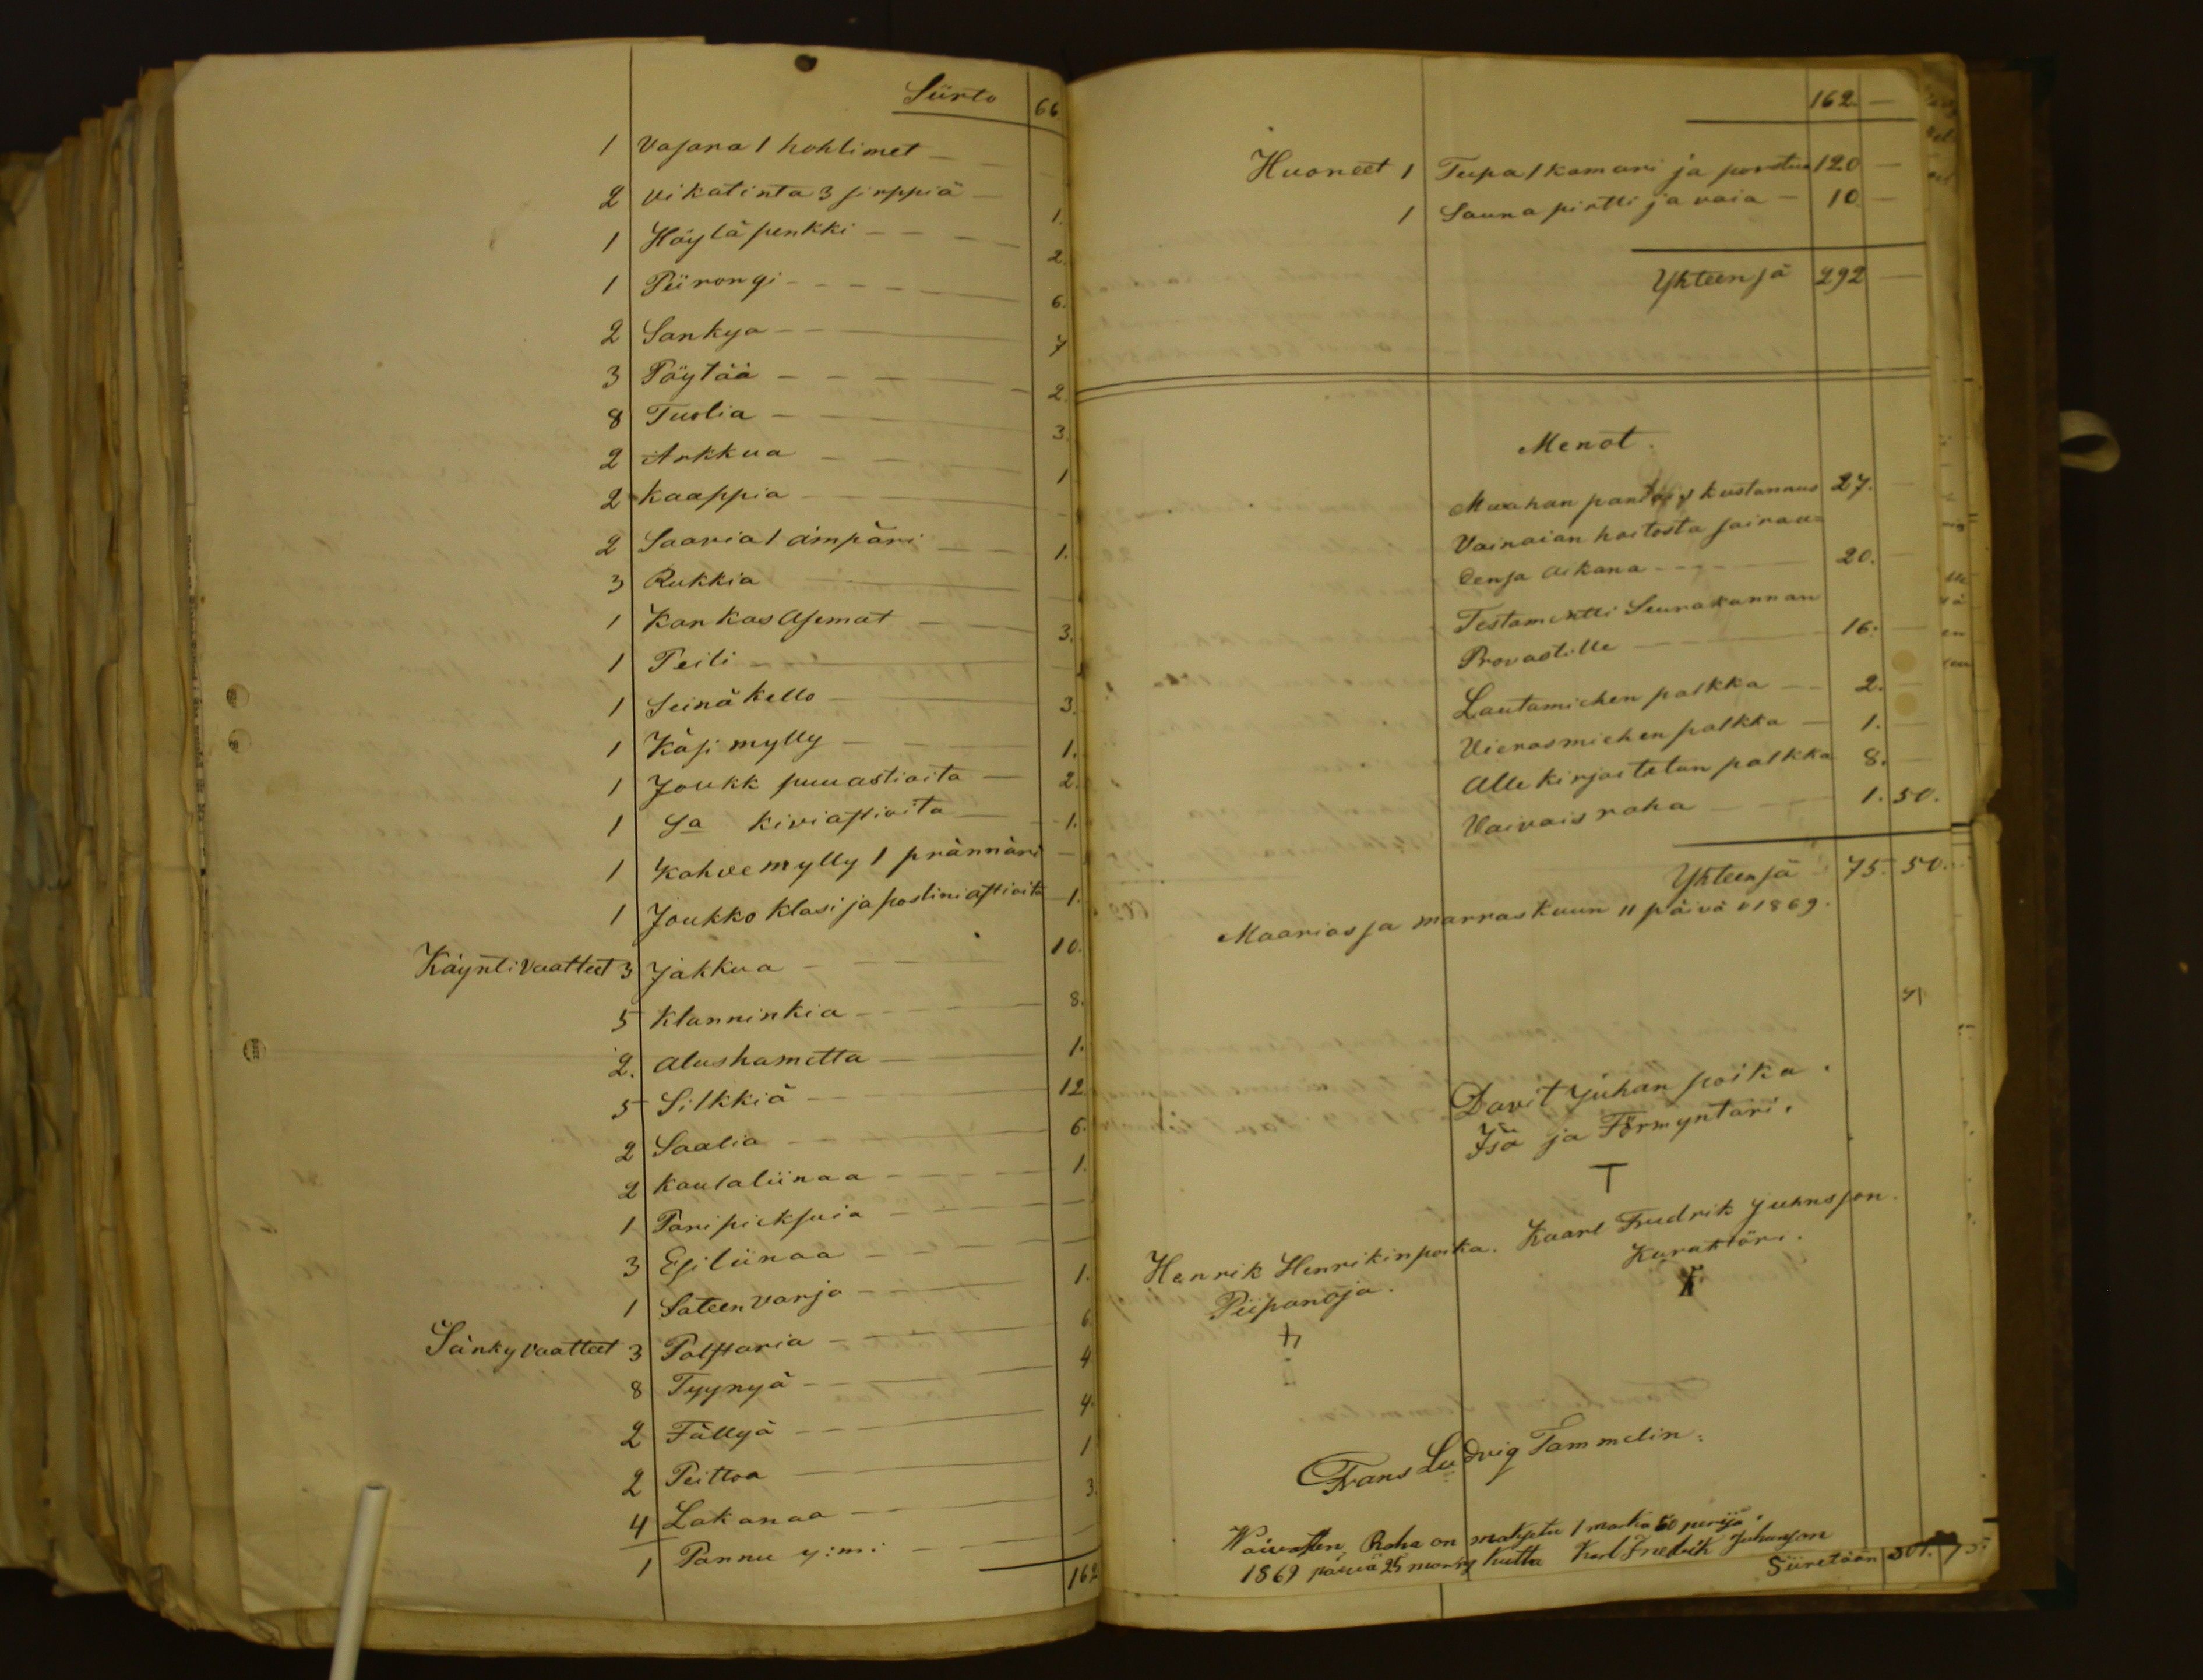 Siirto 66.
1 Vasara 1 hohlimet
2 vikatinta 3 sirppiä 1.
1 Höyläpenkki 2.
1 Piirongi 6.
2 Sankya 7
3 Pöytää 2.
8 Tuolia 3.
2 Arkkua 1
2 Kaappia
2 Saavia 1 ämpäri 1.
3 Rukkia
1 Kankas Asemat 3.
1 Peili
1 Seinäkello 3.
1 Käsi mylly 1.
1 Joukk puuastioita 2.
1 Sa kiviastioita 1.
1 Kahvemylly 1 prännäri
1 Joukko klasi ja posliniastioita 1.
10.
Käynti vaatteet 3 Jakkua
5 Klanninkia 8.
2. alushametta 1.
5 Silkkiä 12
2 Saalia 6.
2 Kaulaliinaa 1.
1 Pari pieksuia
3 Esiliinaa
1 Sateen varjo 1.
Sänkyvaatteet 3 Polstaria 6
8 Tyynyä 4
2 Fällyä 4.
2 Peittoa 1
4 Lakanaa 3.
1 Pannu y:m:
162
162. —
Huoneet 1 Tupa 1 kamari ja porstua 120 —
1 Sauna pirtti ja vaia — 10. —
Yhteensä 292 —
Menot.
Maahan kustannus 27.
Vainaian hoitosta sairau=
densa aikana 20.
Testamentti Seurakannan
Provastille 16.
Lautamiehen palkka 2.
Vierasmiehen palkka 1.
Allekirjoitetun palkka 8.
Vaivais raha 1. 50.
Yhteensä 75. 50.
Maariassa marraskuun 11 päivä v 1869.
Davit Juhan poika.
Isä ja Förmyntäri.
Henrik Henrikinpoika. Kaarl Fredrik Juhnsson.
Piipanoja. Kuraktöri.
Frans Ludvig Tammelin.
Raha on maksettu 1 marka 50 penijä
1869 päivä 25 Kuitta Karl Fredrik Juhansson
Siiretään 301. 75.